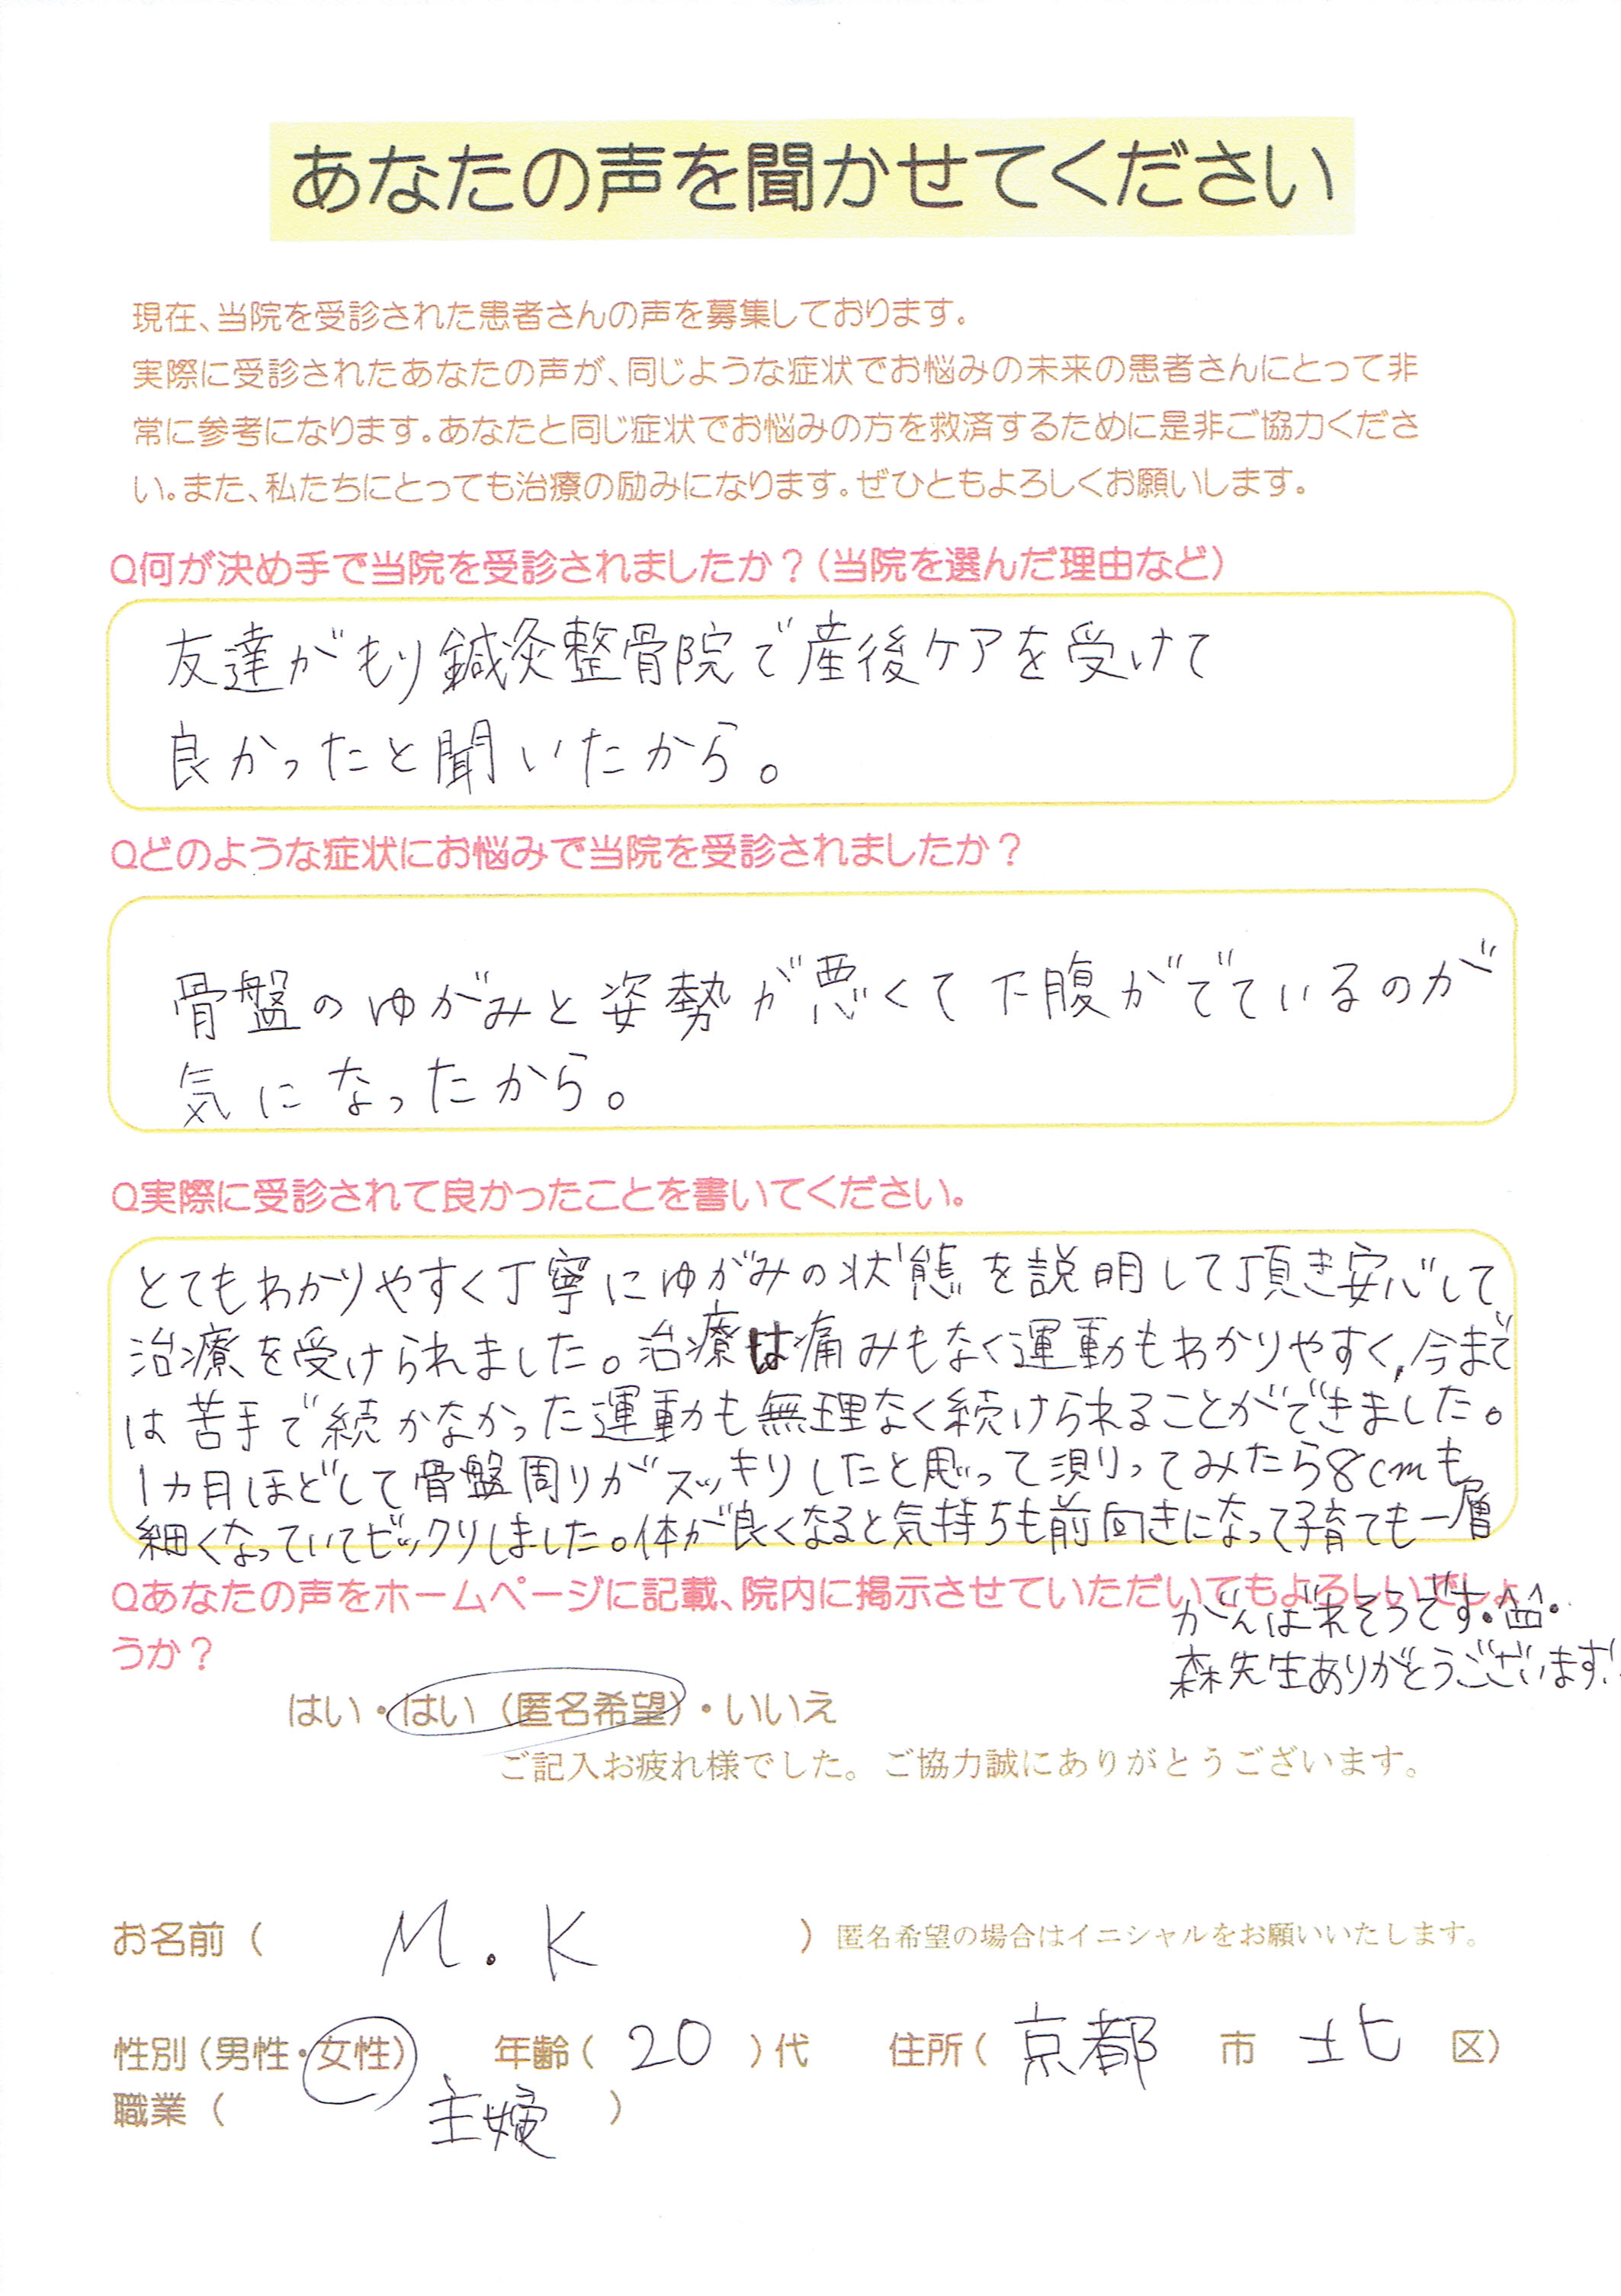 あなたの声を聞かせてください
現在、当院を受診された患者さんの声を募集しております。
実際に受診されたあなたの声が、同じような症状でお悩みの未来の患者さんにとって非
常に参考になります。あなたと同じ症状でお悩みの方を救済するために是非ご協力くださ
い。また、私たちにとっても治療の励みになります。ぜひともよろしくお願いします。
Q何が決め手で当院を受診されましたか？（当院を選んだ理由など）
友達がもり鍼灸整骨院で産後ケアを受けて
良かったと聞いたから。
Qどのような症状にお悩みで当院を受診されましたか？
骨盤のゆがみと姿勢が悪くて下腹がでているのが
気になったから。
Q実際に受診されて良かったことを書いてください。
とてもわかりやすく丁寧にゆがみの状態を説明して頂き安心して
治療を受けられました。治療は痛みもなく運動もわかりやすく、今まで
は苦手で続かなかった運動も無理なく続けられることができました。
1カ月ほどして骨盤周りがスッキリしたと思って測ってみたら8cmも
細くなっていてビックリしました。体が良くなると気持ちも前向きになって子育ても一層
がんばれそうです。^^
森先生ありがとうございます!
Qあなたの声をホームページに記載、院内に掲示させていただいてもよろしいでしょ
うか？
はい・はい（匿名希望）・いいえ
ご記入お疲れ様でした。ご協力誠にありがとうございます。
お名前（ M.K ）匿名希望の場合はイニシャルをお願いいたします。
性別（男性・女性） 年齢（ 20 ）代 住所（ 京都 市 北 区）
職業（ 主婦 ）